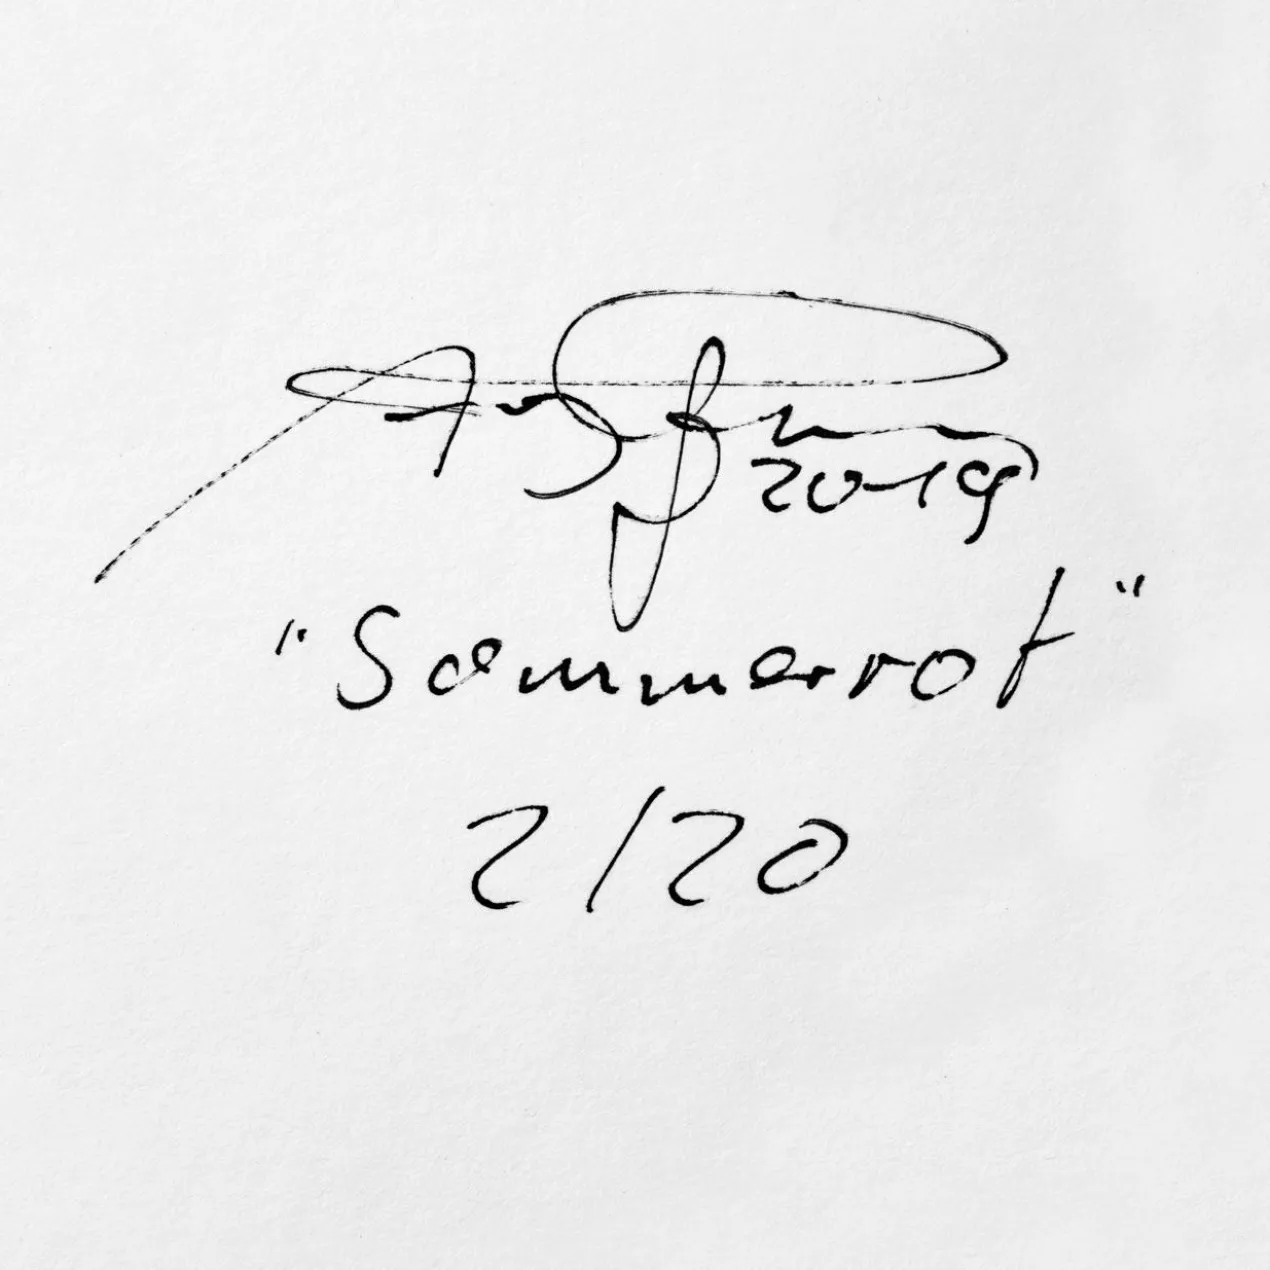 2019
"Sommerrot"
2/20